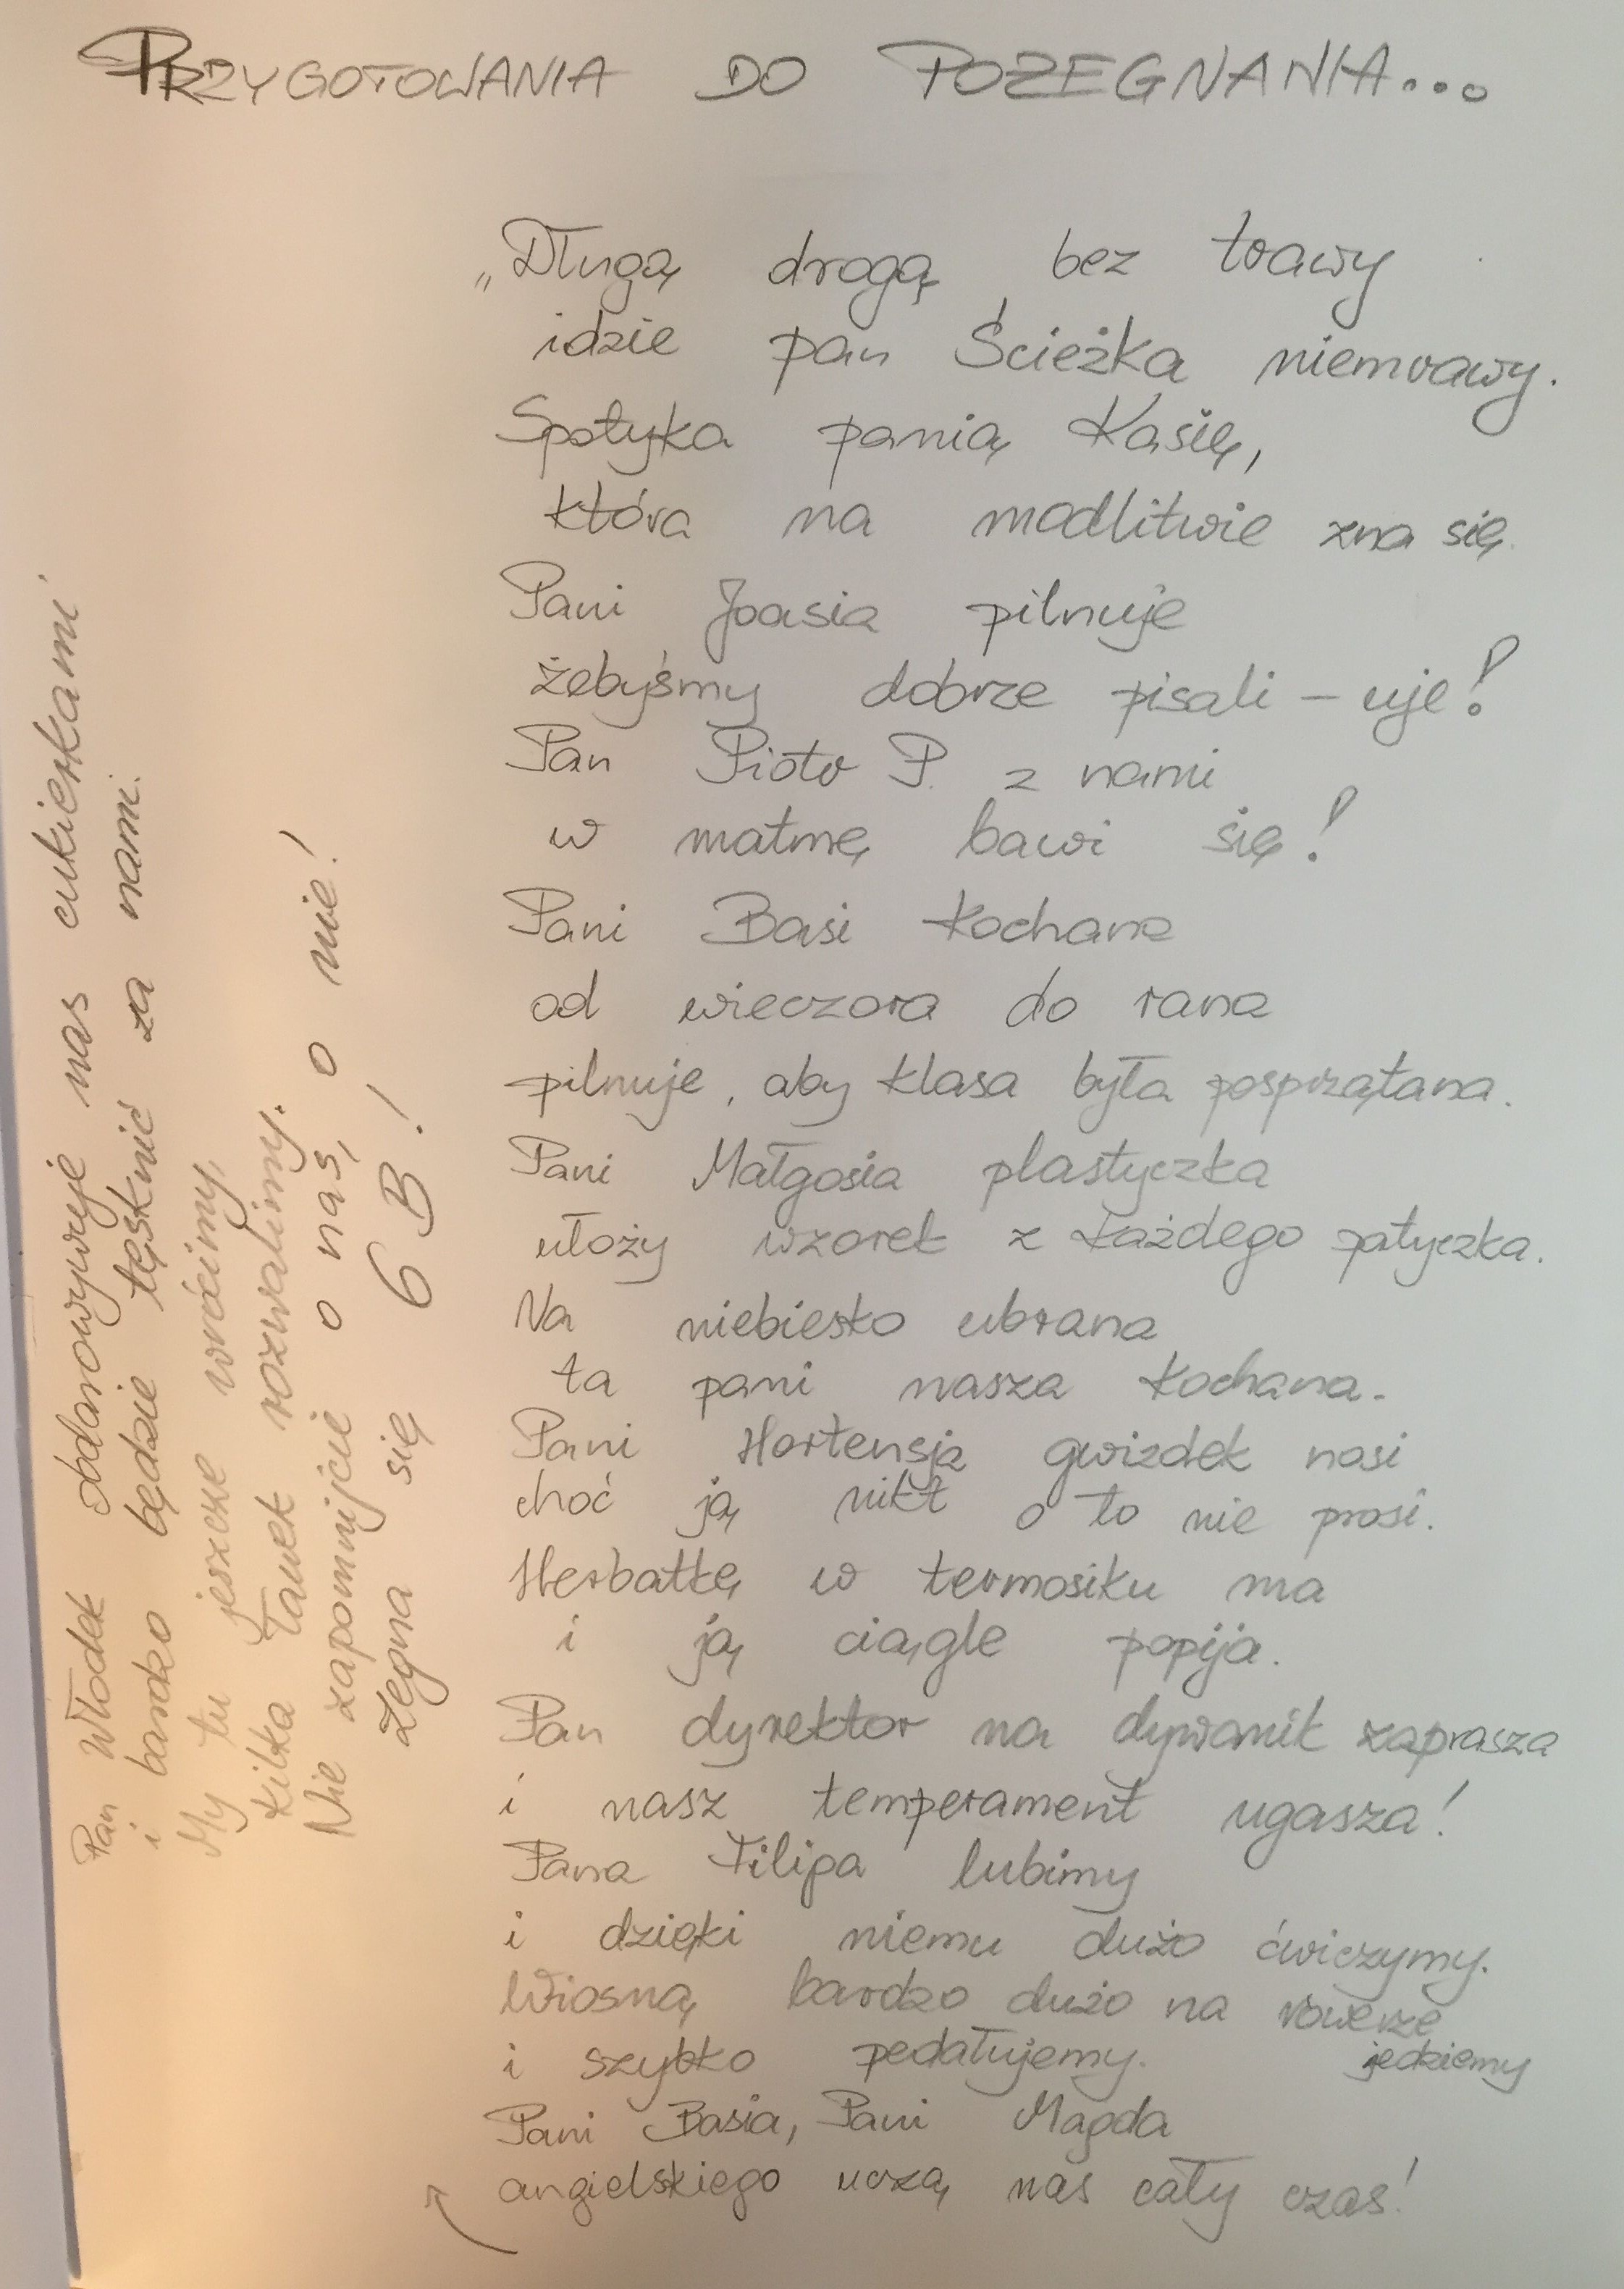 PRZYGOTOWANIA DO POŻEGNANIA...
„Długą drogą bez trawy
idzie pan Ścieżka niemrawy.
Spotyka panią Kasię,
która na modlitwie zna się.
Pani Joasia pilnuje
żebyśmy dobrze pisali – uje!
Pan Piotr P. z nami
w matmę bawi się!
Pani Basi kochana
od wieczora do rana
pilnuje, aby klasa była posprzątana.
Pani Małgosia plastyczka
ułoży wzorek z każdego patyczka.
Na niebiesko ubrana
ta pani nasza kochana.
Pani Hortensja gwizdek nosi
choć ją nikt o to nie prosi.
Herbatkę w termosiku ma
i ją ciągle popija.
Pan dyrektor na dywanik zaprasza
i nasz temperament ugasza!
Pana Filipa lubimy
i dzięki niemu dużo ćwiczymy.
Wiosną bardzo dużo na rowerze
jedziemy
i szybko pedałujemy.
Pani Basia, Pani Magda
angielskiego uczą nas cały czas!
Pan Włodek obdarowywuje nas cukierkami
i bardzo będzie tęsknić za nami.
My tu jeszcze wrócimy,
kilka ławek rozwalimy.
Nie zapomnijcie o nas, o nie!
Żegna się 6 B!